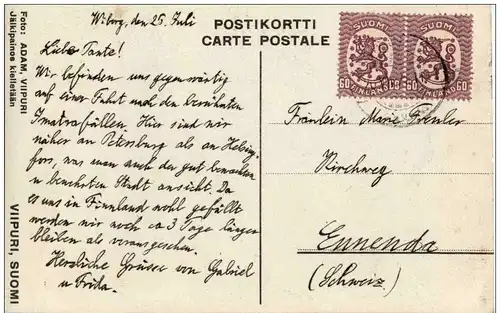 POSTIKORTTI
CARTE POSTALE
Foto: ADAM, VIIPURI
Jälkipainos kielletään
VIIPURI, SUOMI
SUOMI
60 FINLAND 60
SUOMI
60 FINLAND 60
Wiborg, den 25. Juli
Liebe Tante!
Wir befinden uns gegenwärtig
auf einer Fahrt nach den berühmten
Imatrafällen. Hier sind wir
näher an Petersburg als an Helsing-
fors, was man auch der gut bewachten
u. benehsten Stadt ansieht. Da
es uns in Finnland wohl gefällt
werden wir noch ca 3 Tage länger
bleiben als vorausgesehen.
Herzliche Grüsse von Gabriel
u Frida.
Fräulein Marie Trenler
Kirchweg
Ennenda
(Schweiz)